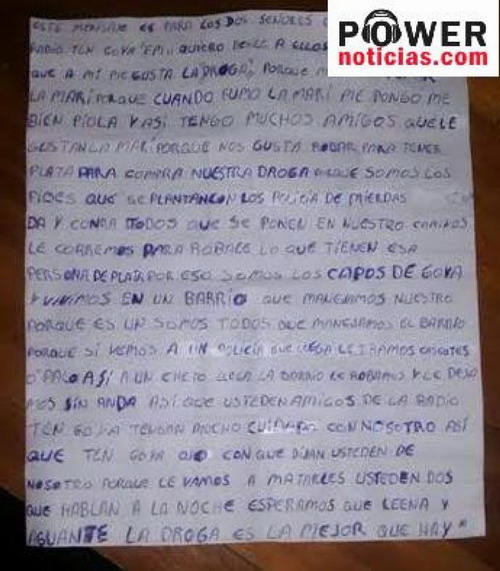 POWER
noticias.com
ESTE MENSAJE ES PARA LOS DOS SEÑORES
RADIO TEN GOYA EMI QUIERO DESILE A ELLOS
QUE A MI ME GUSTA LA DROGA, PORQUE
LA MARI PORQUE CUANDO FUMO LA MARI ME PONGO ME
BIEN PIOLA Y ASI TENGO MUCHOS AMIGOS QUE LE
GUSTAN LA MARI PORQUE NOS GUSTA ROBAR PARA TENER
PLATA PARA COMPRA NUESTRA DROGA PORQUE SOMOS LOS
PIBES QUE SE PLANTAN CON LOS POLICIA DE MIERDAS
DA Y CONTRA TODOS QUE SE PONEN EN NUESTRO CAMINOS
LE CORREMOS PARA ROBALE LO QUE TIENEN ESA
PERSONA DE PLATA POR ESO SOMOS LOS CAPOS DE GOYA
Y VIVIMOS EN UN BARRIO QUE MANEJAMOS NUESTRO
PORQUE ES UN SOMOS TODOS QUE MANEJAMOS EL BARRIO
PORQUE SI VEMOS A UN POLICIA QUE LLEGA LE TIRAMOS CASCOTES
O PALO ASI A UN CHETO LLEGA LA BARRIO LE ROBAMOS Y LE DEJA
MOS SIN ANDA ASI QUE USTEDEN AMIGOS DE LA RADIO
TEN GOYA TENGAN MUCHO CUIDADO CON NOSOTRO ASI
QUE TEN GOYA OJO CON QUE DIJAN USTEDEN DE
NOSOTRO PORQUE LE VAMOS A MATARLES USTEDEN DOS
QUE HABLAN A LA NOCHE ESPERAMOS QUE LEENA Y
AGUANTE LA DROGA ES LA MEJOR QUE HAY"